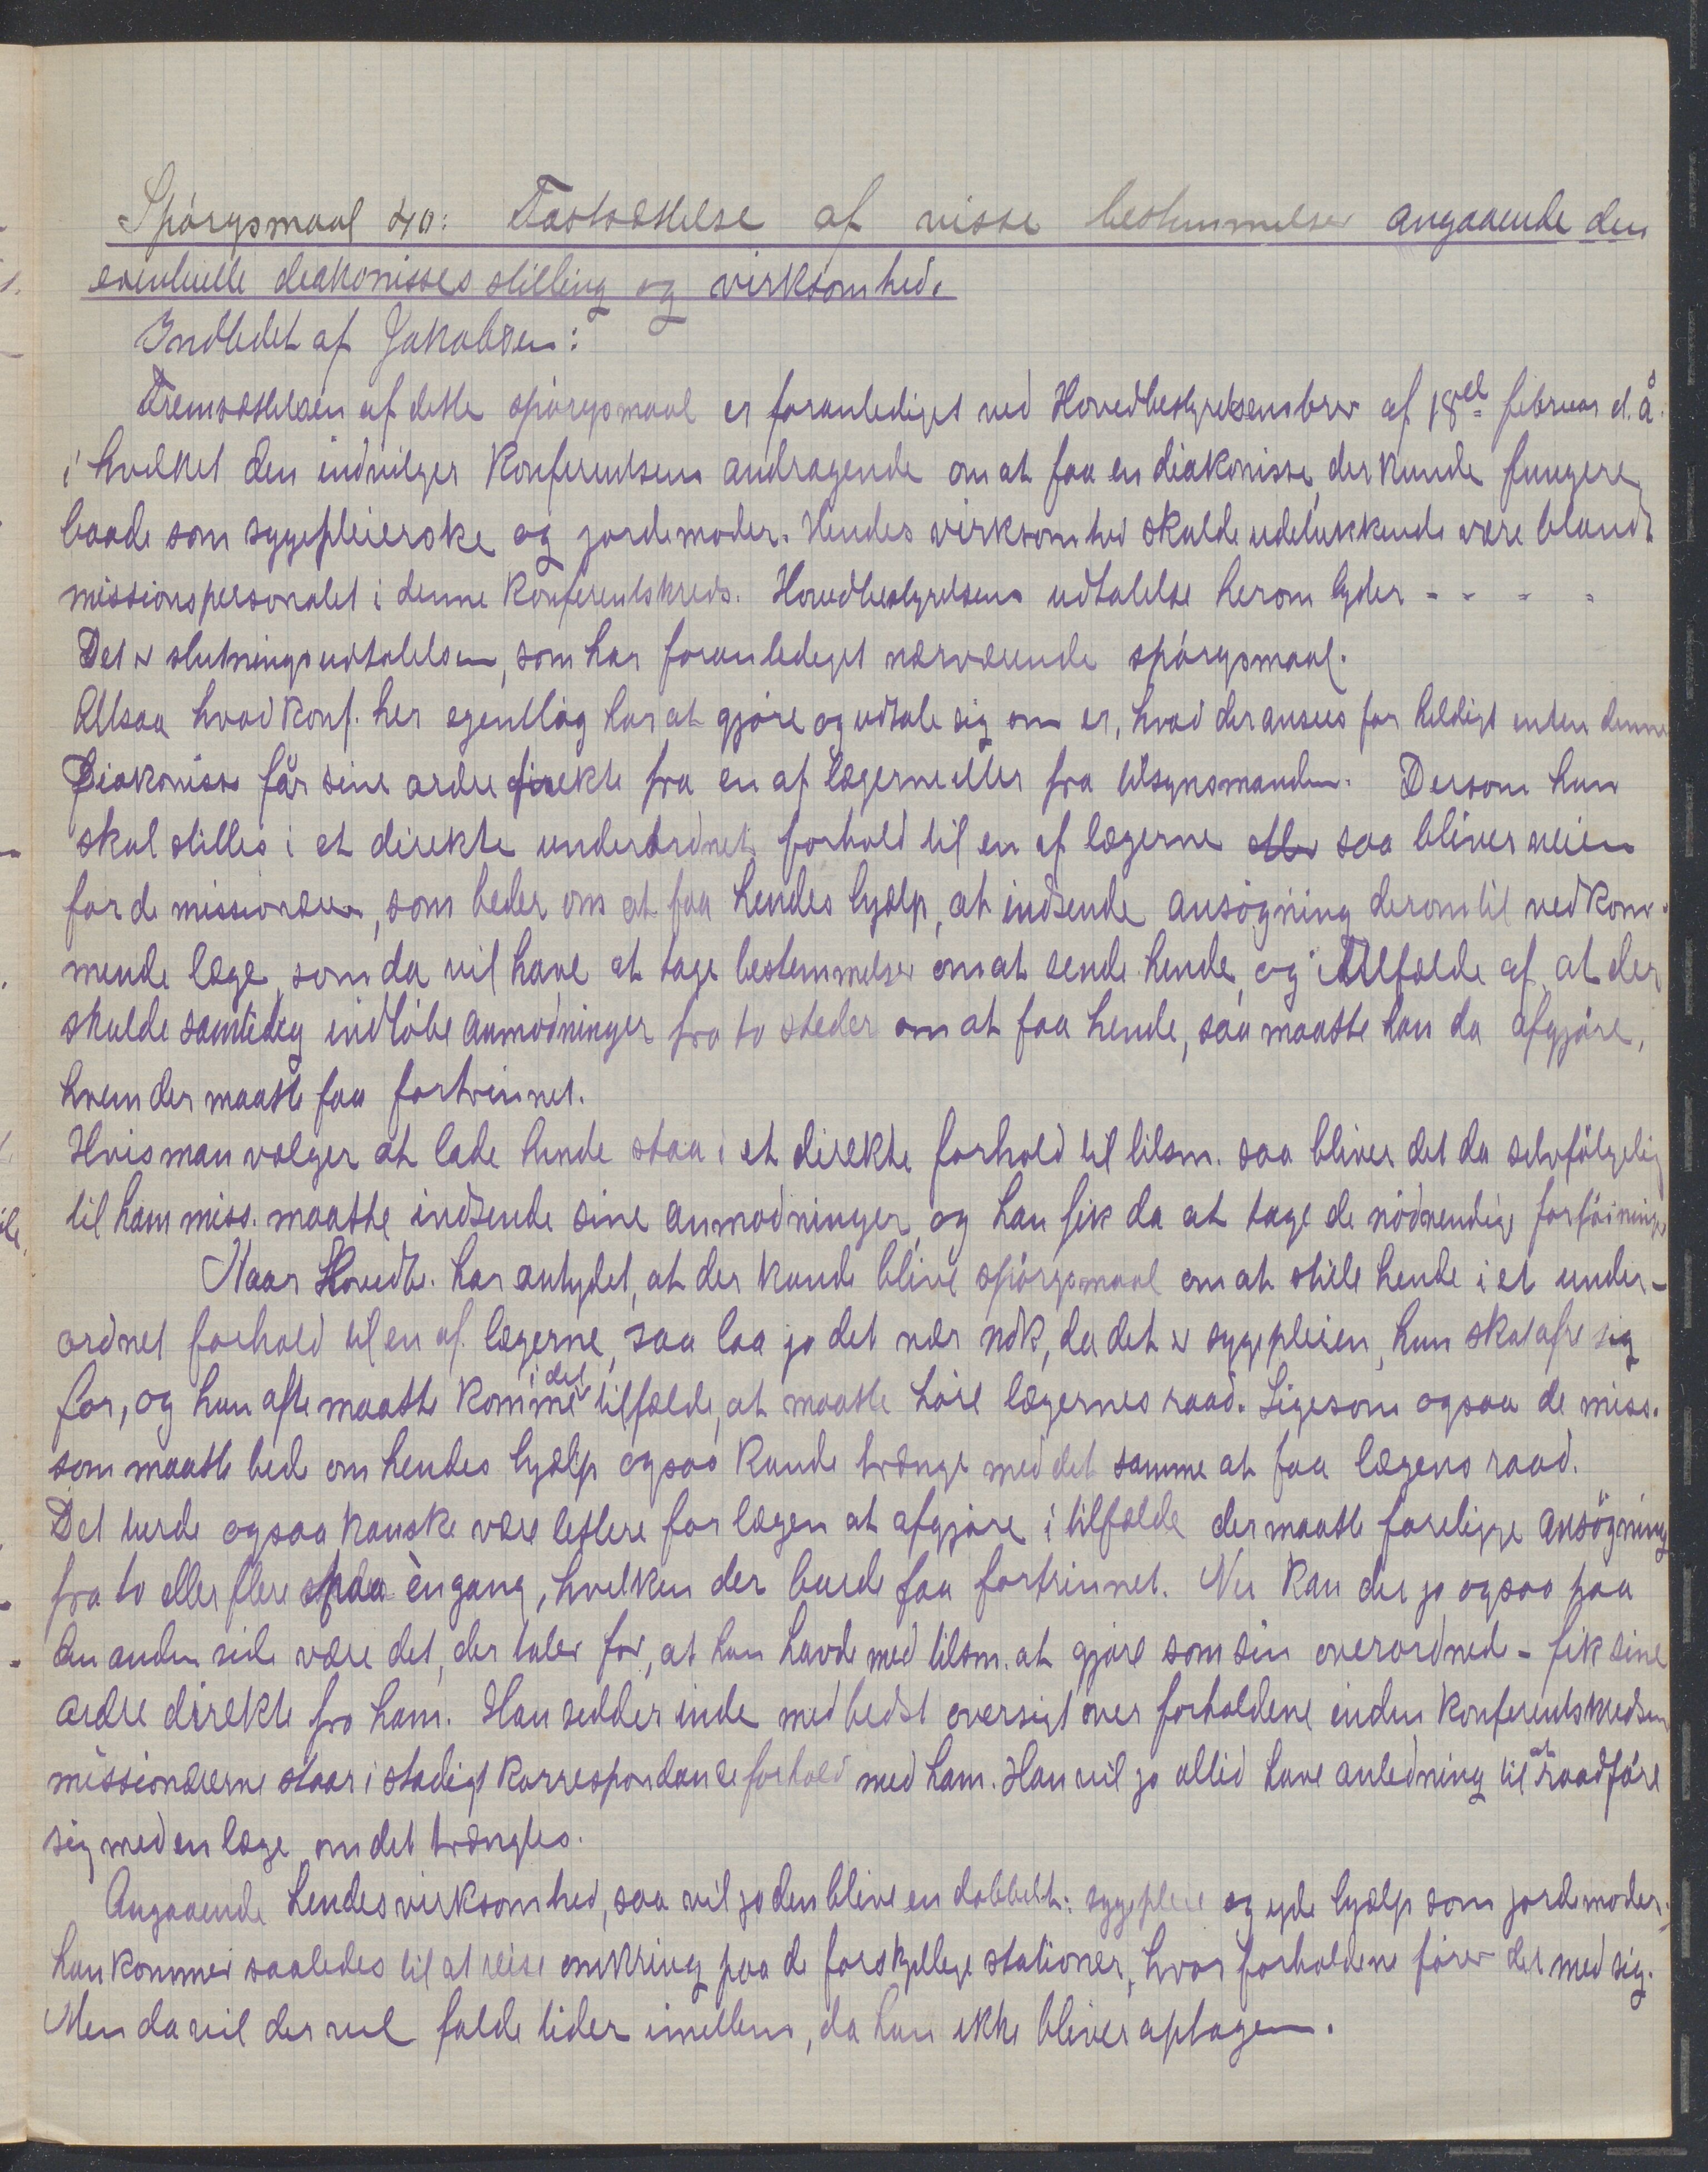 Spörgsmaal 40: Fastsættelse af visse bestemmelser angaaende den
eventuelle diakonisses stilling og virksomhed.
Indledet af Jakobsen:
Fremsættelsen af dette spörgsmaal er foranlediget ved Hovedbestyrelsens brev af 18de februar d.å.
i hvilket den indvilger Konferentsens andragende om at faa en diakonisse, der kunde fungere
baade som sygepleierske og jordemoder. Hendes virksomhed skulde udelukkende være blandt
missionspersonalet i denne Konferentskreds. Hovedbestyrelsens udtalelse herom lyder - - - -
Det er slutningsudtalelsen, som har foranlediget nærværende spörgsmaal.
Altsaa hvad Konf. her egentlig har at gjöre og udtale sig om er, hvad der ansees for heldigt enten denne
Diakonisse får sine ordre direkte fra en af lægerne eller fra tilsynsmanden. Dersom hun
skal stilles i et direkte underordnet forhold til en af lægerne saa bliver veien
for de missionærer, som beder om at faa hendes hjælp, at indsende ansögning derom til vedkom-
mende læge, som da vil have at tage bestemmelser om at sende hende, og i tilfælde af, at der
skulde samtidig indlöbe anmodninger fra to steder om at faa hende, saa maatte han da afgjöre,
hvem der maatte faa fortrinnet.
Hvis man vælger at lade hende staa i et direkte forhold til tilsm. saa bliver det da selvfölgelig
til ham miss. maatte indsende sine anmodninger, og han fik da at tage de nödvendige forföininger
Naar Hovedb. har antydet, at der kunde blive spörgsmaal om at stille hende i et under-
ordnet forhold til en af lægerne, saa laa jo det nær nok, da det er sygepleien, hun skal afgi sig
for, og hun ofte maatte komme i det tilfælde, at maatte höre lægernes raad. Ligesom ogsaa de miss.
som maatte bede om hendes hjælp ogsaa kunde trænge med det samme at faa lægens raad.
Det turde ogsaa kanske være lettere for lægen at afgjöre i tilfælde der maatte foreligge ansögning
fra to eller flere paa èn gang, hvilken der burde faa fortrinnet. Nu kan der jo ogsaa paa
den anden side være det, der taler for, at hun havde med tilsm. at gjöre som sin overordnede - fik sine
ordre direkte fra ham. Han sidder inde med bedst oversigt over forholdene inden Konferentskredsen
missionærerne staar i stadigt korrespondanceforhold med ham. Han vil jo altid have anledning til at raadföre
sig med en læge om det trængtes.
Angaaende hendes virksomhed, saa vil jo den blive en dobbelt: sygepleie og yde hjælp som jordemoder;
hun kommer saaledes til at reise omkring paa de forskjellige stationer, hvor forholdene förer det med sig.
Men da vil der vel falde tider imellem, da hun ikke bliver optagen.